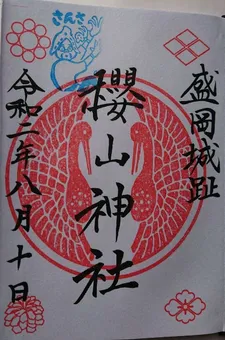 盛岡城趾
櫻山神社
令和二年八月十日
さんさ